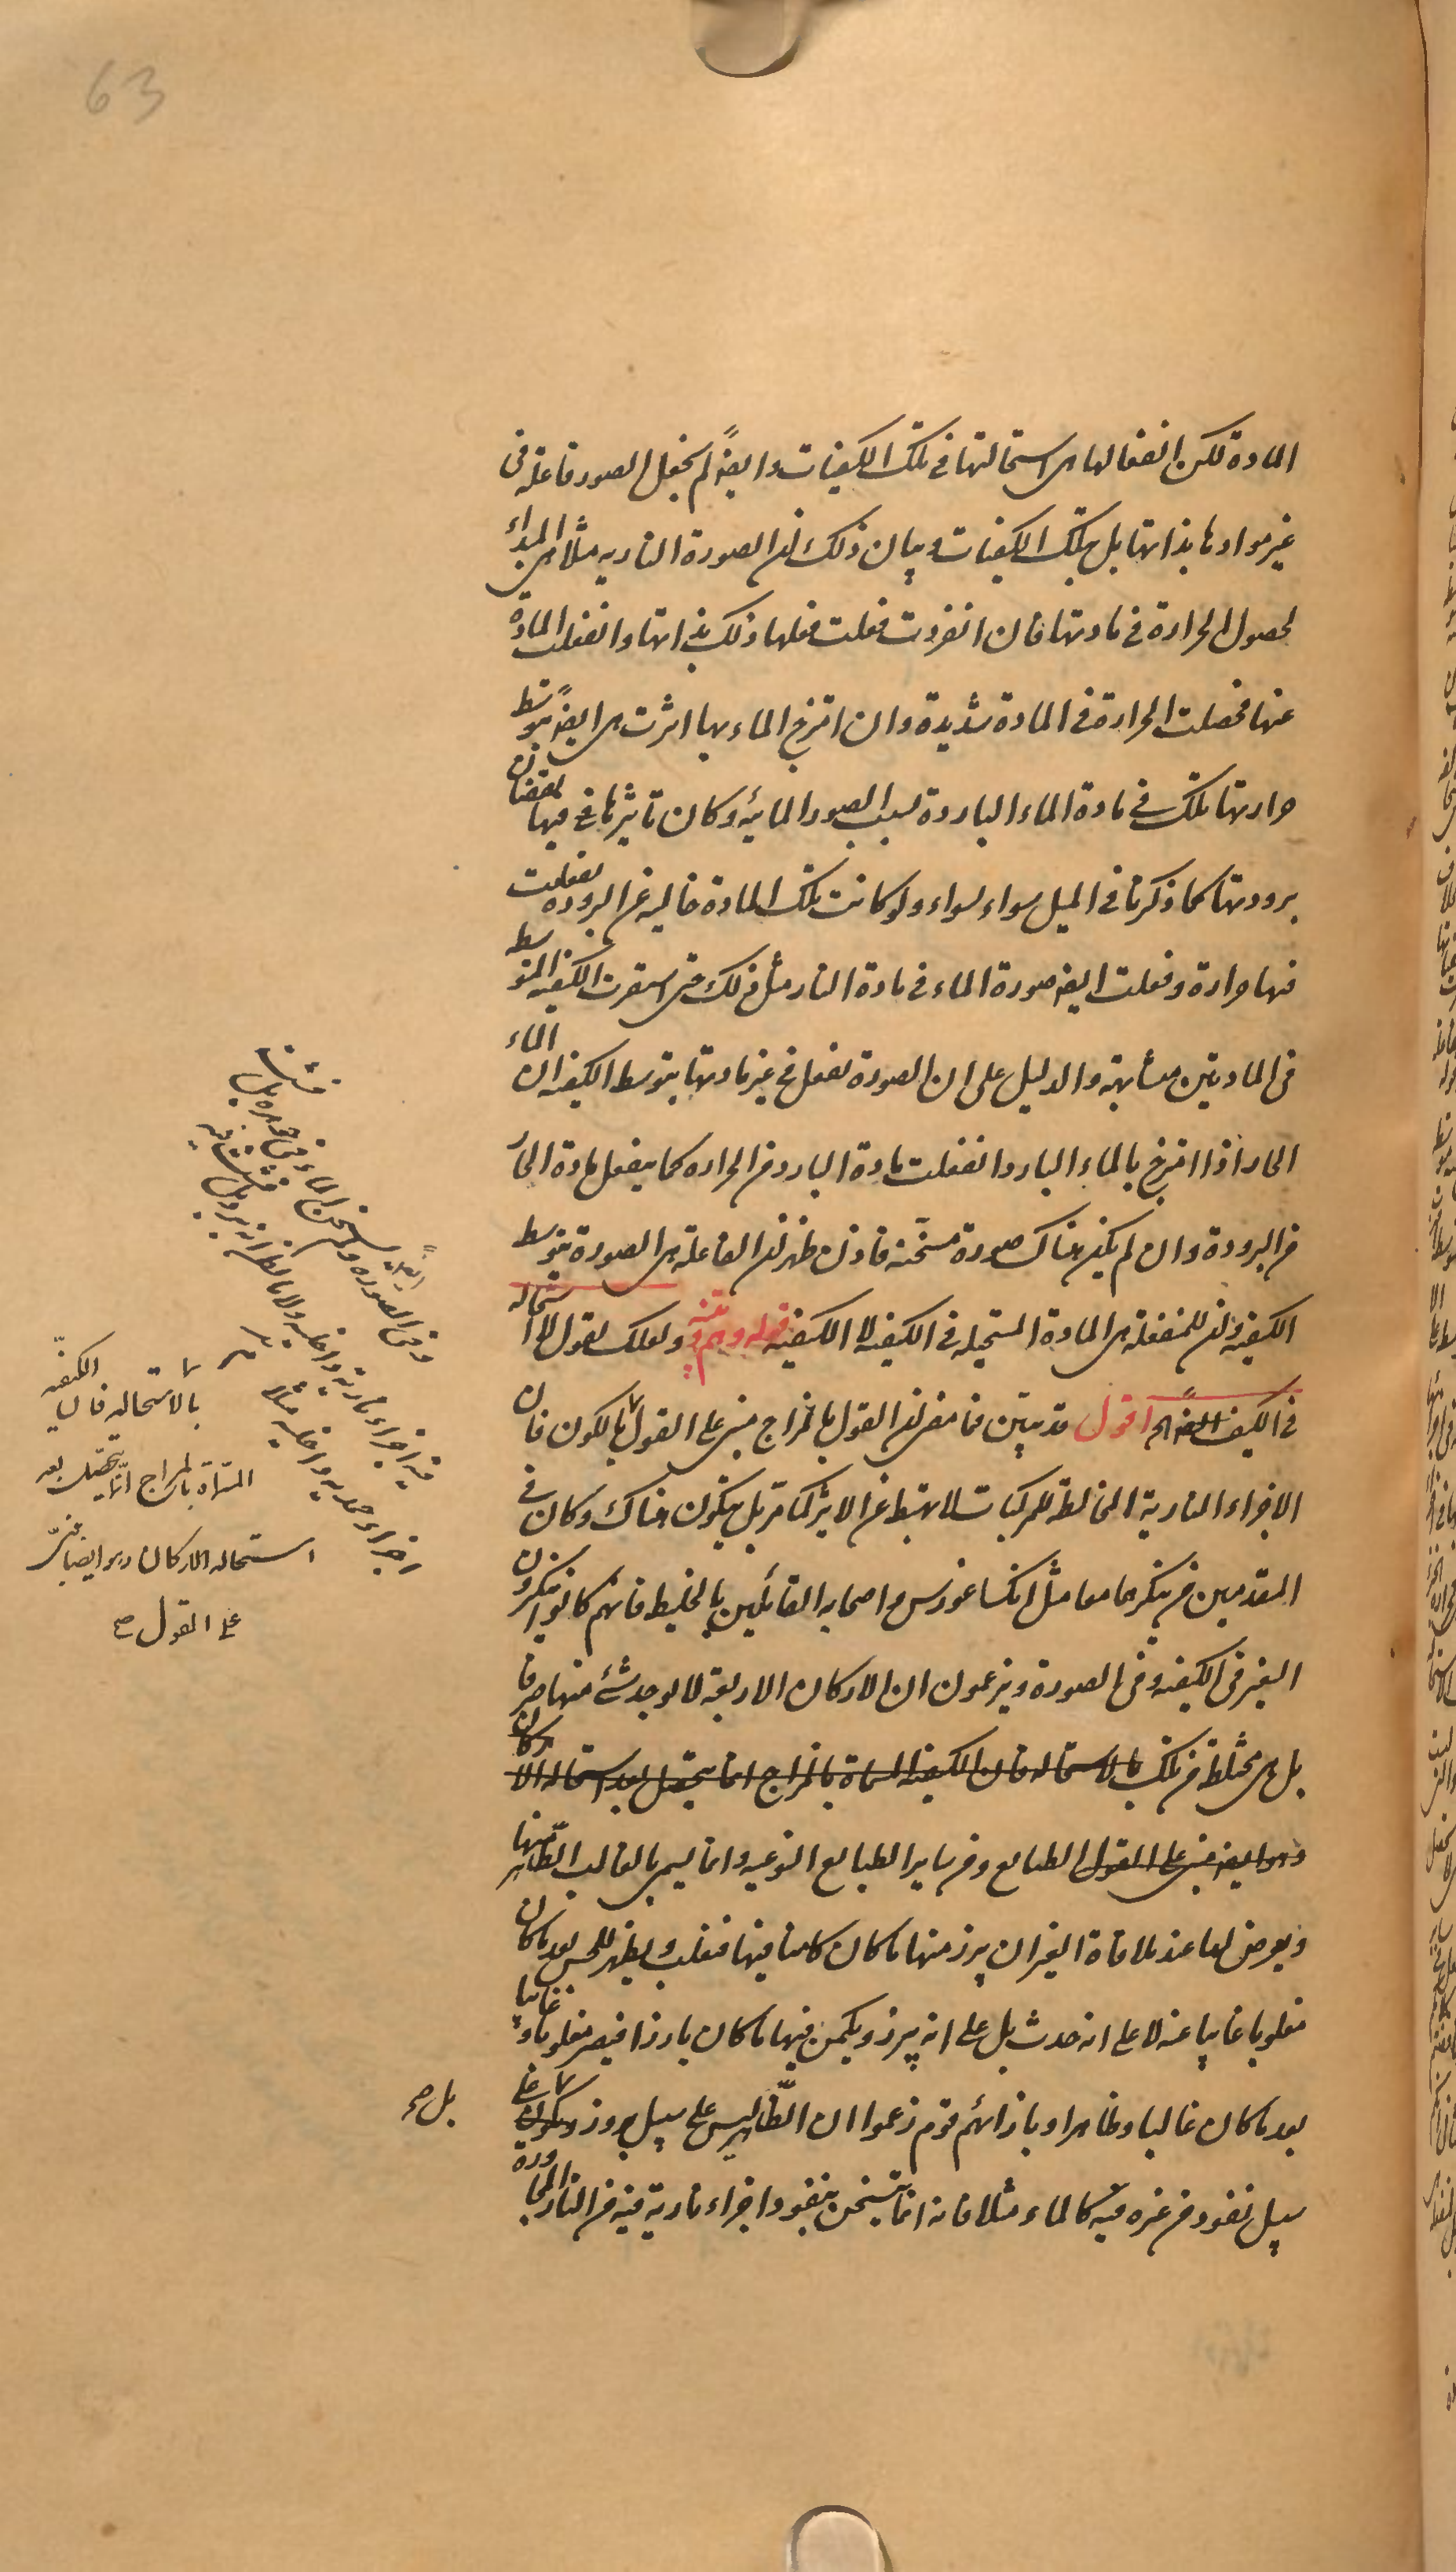 63
المادة لكن انفعالها هى استحالتها فى تلك الكيفيات وايضاً لم نجعل الصور فاعلة فى
غير موادها بذاتها بل بتلك الكيفيات وبيان ذلك ان الصورة النارية مثلا هى المبدأ
لحصول الحرارة فى مادتها فان انفردت فعلت فعلها ذلك بذاتها وانفعلت المادة
عنها فحصلت الحرارة فى المادة شديدة وان امتزج الماء بها اثرت هى ايضاً بتوسط
حرارتها تلك فى مادة الماء الباردة بسبب الصور المائية وكان تاثيرها فى فيها نقصان
برودتها كما ذكرنا فى الميل سواء بسواء ولو كانت تلك المادة خالية عن البرودة لفعلت
فيها حرارة وفعلت ايضا صورة الماء فى مادة النار مثل ذلك حتى استقرت الكيفية المتوسطة
فى المادتين متشابهة والدليل على ان الصورة تفعل فى غير مادتها بتوسط الكيفية ان الماء
الحار اذا امتزج بالماء البارد انفعلت مادة البارد من الحرارة كما ينفعل مادة الحار
من البرودة وان لم يكن هناك صورة مسخّنة فاذن ظهر ان الفاعلة هى الصورة بتوسط
الكيفية وان المنفعلة هى المادة المستحيلة فى الكيفية لا الكيفية قوله وهم وتنبيه ولعلك تقول لا استحالة
فى الكيف ايضاً الخ اقول قد تبين فيما مضى ان القول بالمزاج مبنى على القول بالكون فان
الاجزاء النارية المخالطة للمركبات لا تهبط عن الاثير كما مر بل يتكون هناك وكان فى
المتقدمين من ينكرهما معا مثل انكساغورس واصحابه القائلين بالخليط فانهم كانوا ينكرون
التغير فى الكيفية وفى الصورة ويزعمون ان الاركان الاربعة لا يوجد شئ منها صرفا
بل هى مختلطة من تلك بالاستحالة فان الكيفية المسماة بالمزاج انما يحصل بعد استحالة الاركان
وهو ايضا مبنى على القول الطبايع ومن ساير الطبايع النوعية وانما يسمى بالغالب الظاهر منها
ويعرض لها عند ملاقاة الغير ان يبرز منها ما كان كامنا فيها فيغلب ويظهر للحس بعد ما كان
مغلوبا غائبا عنه لا على انه حدث بل على انه يبرز ويكمن فيها ما كان بارزا فيصير مغلوبا وغائبا
بعد ما كان غالبا وظاهرا وبازائهم قوم زعموا ان الظاهر ليس على سبيل بروز وكمون على
سبيل نفوذ من غيره فيه كالماء مثلا فانه انما يتسخن بنفوذ اجزاء نارية فيه من النار المجاورة
بل صح
بالاستحالة فان الكيفية
المسماة بالمزاج انما يحصل بعد
استحالة الاركان وهو ايضا مبنى
على القول صح